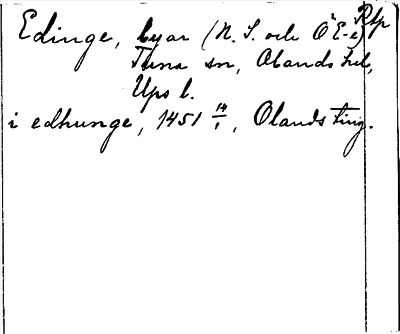 Edinge, byar (N. S. och Ö E-e) Rsp
Tuna sn, Olands hd,
Ups l.
i edhunge, 1451 14/1, Olands ting.